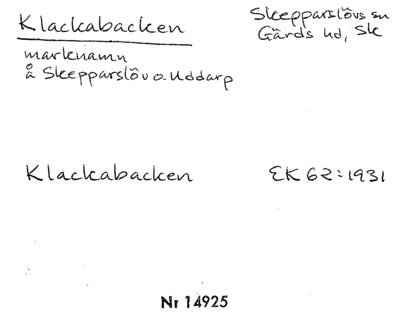 Klackabacken
Skepparslövs sn
Gärds hd, Sk
marknamn
å Skepparslöv o. Uddarp
Klackabacken
EK 62:1931
Nr 14925